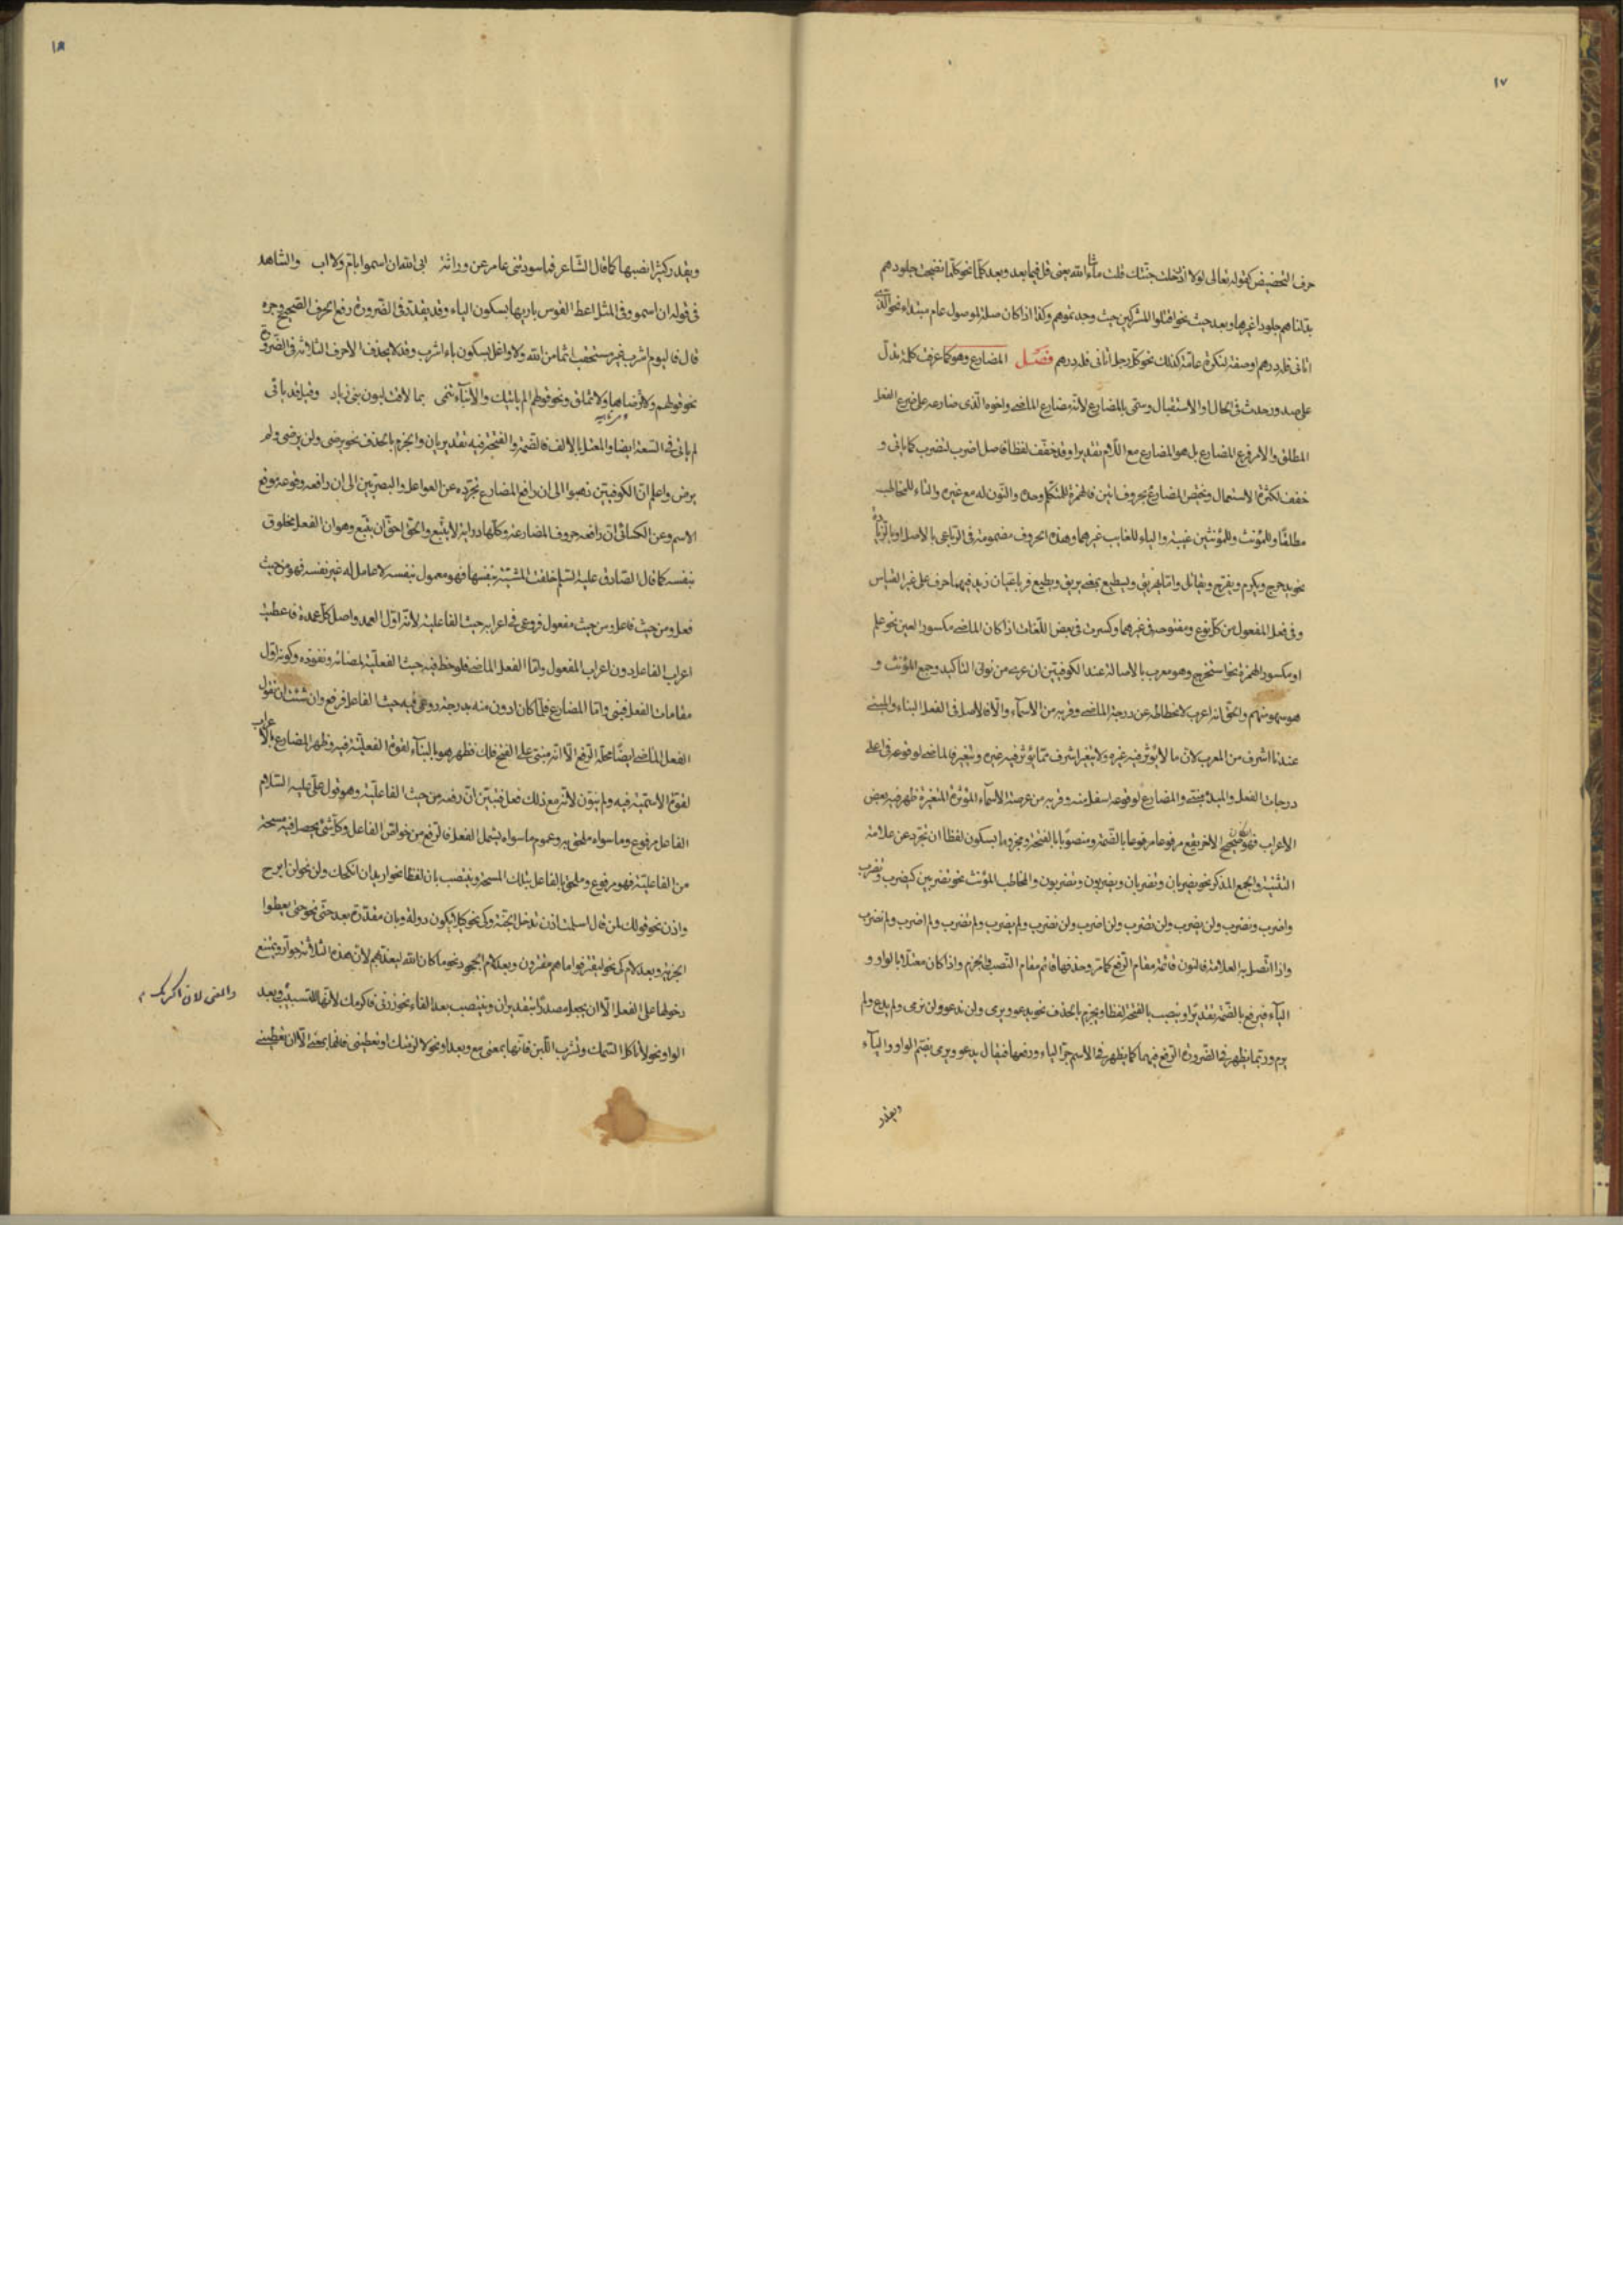 ١٧
حرف التحضيض كقوله تعالى لولا اذ دخلت جنتك قلت ما شاء الله يعنى قل فيما بعد وبعد كلما نحو كلما نضجت جلودهم
بدلناهم جلودا غيرها وبعد حيث نحو اقتلوا المشركين حيث وجدتموهم وكذا اذا كان صلة لموصول عام مبتداء نحو الذى
اتانى فله درهم او صفة لنكرة عامة كذلك نحو كل رجل اتانى فله درهم فصل المضارع وهو كما عرفت كلمة تدل
على صدور حدث فى الحال او الاستقبال وسمى بالمضارع لانه مضارع الماضى واخوه الذى ضارعه على ضرع الفعل
المطلق والامر فرع المضارع بل هو المضارع مع اللام تقديرا وقد خفف لفظا فاصل اضرب لتضرب كما ياتى و
خفف لكثرة الاستعمال ويختص المضارع بحروف اتين فالهمزة للمتكلم وحده والنون له مع غيره والتاء للمخاطب
مطلقا وللمؤنث وللمؤنثين غيبة والياء للغايب غيرهما وهذه الحروف مضمومة فى الرباعى بالاصل او بالزيادة
نحو يدحرج ويكرم ويفرح ويقاتل واما يهريق ويسطيع بمعنى يريق ويطيع فرباعيان زيد فيهما حرف على غير القياس
وفى فعل المفعول من كل نوع ومفتوحة فى غيرهما وكسرت فى بعض اللغات اذا كان الماضى مكسور العين نحو علم
او مكسور الهمزة نحو استخرج وهو معرب بالاصالة عند الكوفيين ان عرى من نونى التاكيد وجمع المؤنث و
هو سهو منهم والحق انه اعرب لانحطاطه عن درجة الماضى وقربه من الاسماء والا فالاصل فى الفعل البناء والمبنى
عندنا اشرف من المعرب لان ما لا يؤثر فيه غيره ولا يتغير اشرف مما يؤثر فيه غيره ويتغير فالماضى لوقوعه فى اعلى
درجات الفعل والمبدء مبنى والمضارع لوقوعه اسفل منه وقربه من عرصة الاسماء المؤثرة المتغيرة ظهر فيه بعض
الاعراب فهو ان كان صحيح الاخر يقع مرفوعا مرفوعا بالضمة ومنصوبا بالفتحة ومجزوما بسكون لفظا ان تجرد عن علامة
التثنية والجمع المذكر نحو يضربان وتضربان ويضربون وتضربون والمخاطب المؤنث نحو تضربين كيضرب وتضرب
واضرب ونضرب ولن يضرب ولن تضرب ولن اضرب ولن نضرب ولم يضرب ولم تضرب ولم اضرب ولم نضرب
واذا اتصل به العلامة فالنون قائمة مقام الرفع كما مر وحذفها قائم مقام النصب والجزم واذا كان معتلا بالواو و
الياء فيرفع بالضمة تقديرا وينصب بالفتحة لفظا ويجزم بالحذف نحو يدعو ويرمى ولن يدعو ولن يرمى ولم يدع ولم
يرم وربما يظهر فى الضرورة الرفع فيهما كما يظهر فى الاسم جر الياء ورفعها فيقال يدعو ويرمى بضم الواو والياء
ويقدر
١٨
ويقدر كثيرا نصبها كما قال الشاعر فما سودتنى عامر عن وراثة ابى الله ان اسمو بام ولا اب والشاهد
فى قوله ان اسمو وفى المثل اعط القوس باريها بسكون الياء وقد يقدر فى الضرورة رفع الحرف الصحيح وجره
قال فاليوم اشرب غير مستحقب اثما من الله ولا واغل بسكون باء اشرب وقد لا يحذف الاحرف الثلاثة فى الضرورة
نحو قولهم ولا ترضاها ولا تملق ونحو قولهم الم ياتيك والانباء تنمى بما لاقت لبون بنى زياد وقيل قد ياتى
لم ياتى فى السعة ايضا والمعتل بالالف فالضمة والفتحة فيه تقديريان والجزم بالحذف نحو يرضى ولن يرضى ولم
يرض واعلم ان الكوفيين ذهبوا الى ان رافع المضارع تجرده عن العوامل والبصريين الى ان رافعه وقوعه موقع
الاسم وعن الكسائى ان رافعه حروف المضارعة وكلها دراية لا يتبع والحق احق ان يتبع وهو ان الفعل مخلوق
بنفسه كما قال الصادق عليه السلم خلقت المشية بنفسها فهو معمول بنفسه لا عامل له غير نفسه فهو من حيث
فعل ومن حيث فاعل ومن حيث مفعول فروعى فى اعرابه حيث الفاعلية لانه اول العمد واصل كل عمدة فاعطيت
اعراب الفاعل دون اعراب المفعول واما الفعل الماضى فلوحظ فيه حيث الفعلية لمضائه ونفوذه وكونه اول
مقامات الفعل فبنى واما المضارع فلما كان ادون منه بدرجة روعى فيه حيث الفاعل فرفع وان شئت ان تقول
الفعل الماضى ايضا محله الرفع الا انه مبنى على الفتح فلك فظهر هو بالبناء لقوة الفعلية فيه وظهر المضارع بالاعراب
لقوة الاسمية فيه ولم ينون لانه مع ذلك فعل فتبين ان رفعه من حيث الفاعلية وهو قول على عليه السلام
الفاعل مرفوع وما سواه ملحق به وعموم ما سواه يشمل الفعل فالرفع من خواص الفاعل وكل شئ يحصل فيه مسحة
من الفاعلية فهو مرفوع وملحق بالفاعل بتلك المسحة وينتصب بان لفظا نحو اريد ان انكحك ولن نحو لن ابرح
واذن نحو قولك لمن قال اسلمت اذن تدخل الجنة وكى نحو كيلا يكون دولة وبان مقدرة بعد حتى نحو حتى يعطوا
الجزية وبعد لام كى نحو ليقترفوا ما هم مقترفون وبعد لام الجحود نحو ما كان الله ليعذبهم لان هذه الثلاثة جوار ويمتنع
دخولها على الفعل الا ان يجعل مصدرا بتقدير ان وينتصب بعد الفاء نحو زرنى فاكرمك لانها للتسبيب وبعد
والمعنى لان اكرمك
الواو نحو لا تاكل السمك وتشرب اللبن فانها بمعنى مع وبعد او نحو لالزمنك او تعطينى فانها بمعنى الا ان تعطينى